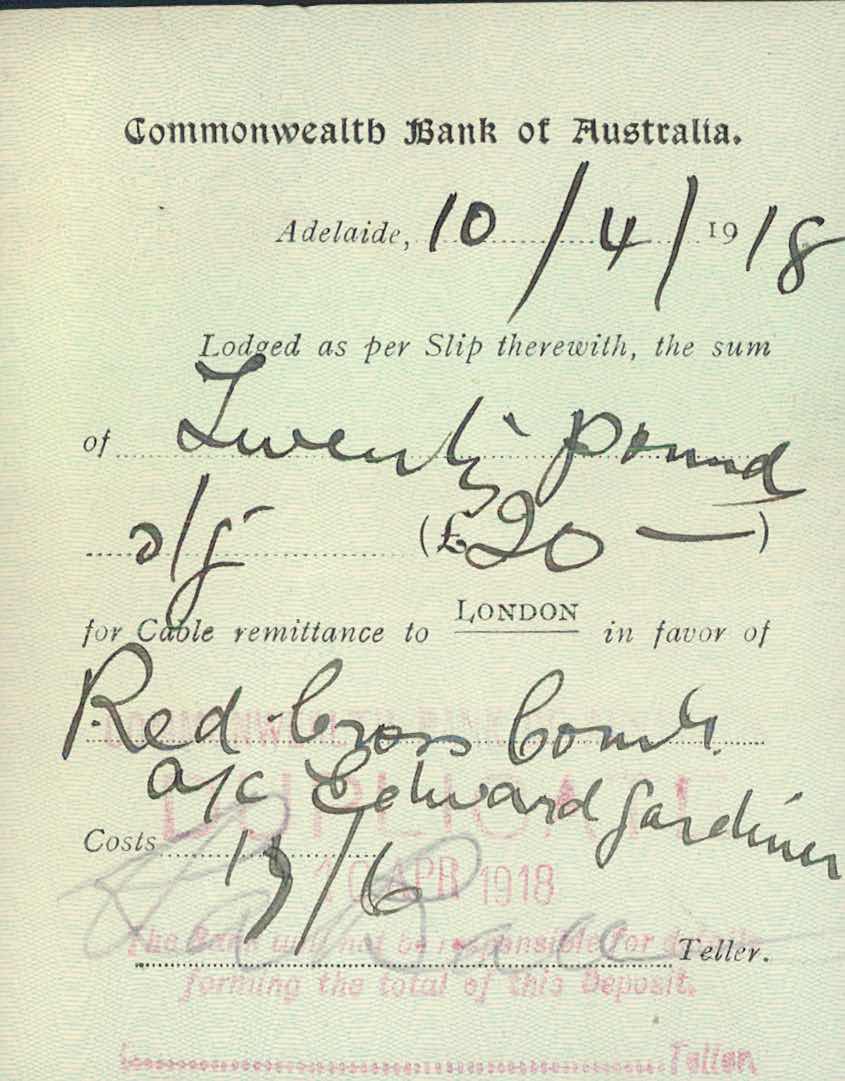 Commonwealth Bank of Australia.
Adelaide, 10/4/1918
Lodged as per Slip therewith, the sum
of Twenty pound
s/g (£20 —)
for Cable remittance to LONDON in favor of
Red Cross Comtt.
COMMONWEALTH BANK
a/c Edward Gardiner
DUPLICATE
Costs 17/6
10 APR 1918
The Bank will not be responsible for details
Teller.
forming the total of this Deposit.
Teller